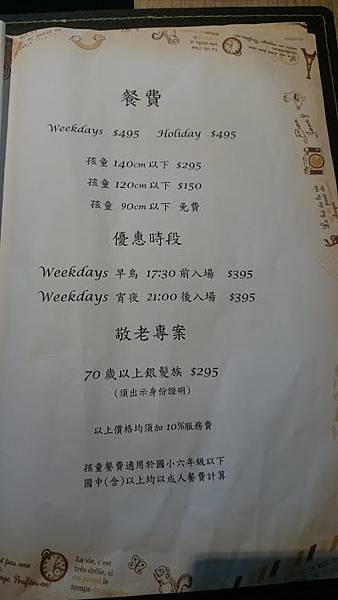 餐費
Weekdays $495 Holiday $495
孩童 140cm以下 $295
孩童 120cm以下 $150
孩童 90cm以下 免費
優惠時段
Weekdays 早鳥 17:30 前入場 $395
Weekdays 宵夜 21:00 後入場 $395
敬老專案
70 歲以上銀髮族 $295
(須出示身份證明)
以上價格均須加 10%服務費
孩童餐費適用於國小六年級以下
國中(含)以上均以成人餐費計算
La vie, c'est
très drôle, si
on prend le
temps de